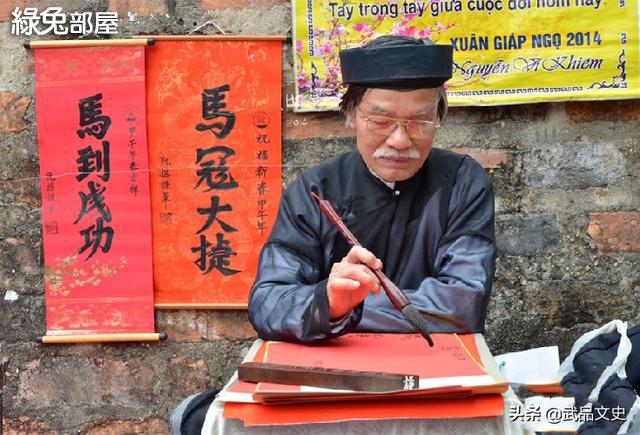 綠兔部屋
Tay trong tay giữa cuộc đời hôm nay.
XUÂN GIÁP NGỌ 2014
Nguyễn Vĩ Khiêm
馬到成功
甲午年春吉祥
馬冠大捷
祝福新春甲午年
头条 @武品文史